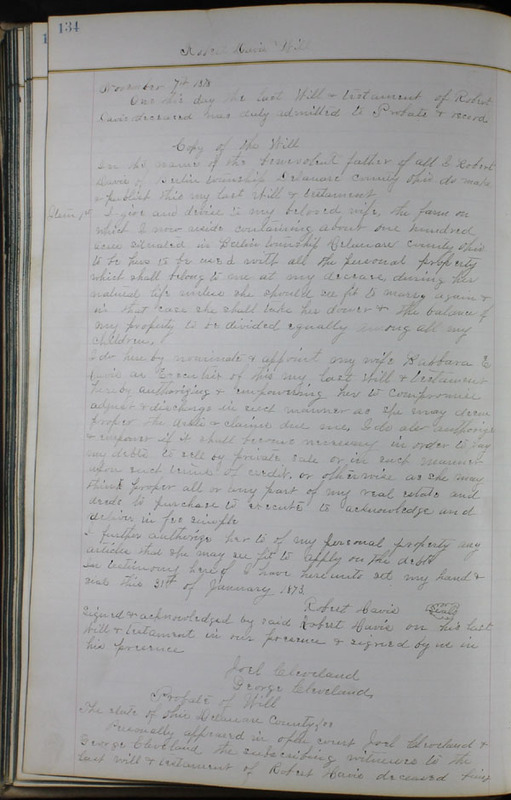 134
Robert Davis Will
November 7th 1878
On this day the last Will & testament of Robert
Davis deceased was duly admitted to Probate & record
Copy of the Will
In the name of the benevolent father of all I Robert
Davis of Berlin township Delaware county Ohio do make
& publish this my last Will & testament
Item 1st I give and devise to my beloved wife, the farm on
which I now reside containing about one hundred
acres situated in Berlin township Delaware County Ohio
to be hers to be used with all the personal property
which shall belong to me at my decease, during her
natural life unless she should see fit to marry again &
in that case she shall take her dower & the balance of
my property to be divided equally among all my
children.
I do hereby nominate & appoint my wife Barbara E
Davis as Executrix of this my last Will & testament
hereby authorizing & empowering her to compromise
adjust & discharge in such manner as she may deem
proper the debts & claims due me, I do also authorize
& empower if it shall become necessary in order to pay
my debts to sell by private sale or in such manner
upon such terms of credit, or otherwise as she may
think proper all or any part of my real estate and
deeds to purchase to execute to acknowledge and
deliver in fee simple
I further authorize her to of my personal property any
articles that she may see fit to apply on the debts
In testimony hereof I have hereunto set my hand &
seal this 31st of January 1873
Robert Davis Seal
Signed & acknowledged by said Robert Davis on his last
Will & testament in our presence & signed by us in
his presence
Joel Cleveland
George Cleveland
Probate of Will
The state of Ohio Delaware County ss
Personally appeared in open court Joel Cleveland &
George Cleveland the subscribing witnesses to the
last will & testament of Robert Davis deceased being